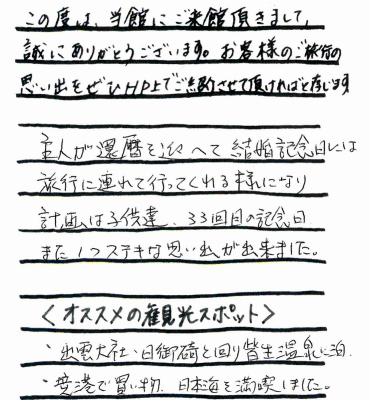 この度は、当館にご来館頂きまして、
誠にありがとうございます。お客様のご旅行の
思い出をぜひHP上でご紹介させて頂ければと存じます
主人が還暦を迎へて結婚記念日には
旅行に連れて行ってくれる様になり
計画は子供達、33回目の記念日
また1つステキな思い出が出来ました。
〈オススメの観光スポット〉
・出雲大社・日御碕と回り皆生温泉に泊、
・境港で買い物、日本海を満喫しました。